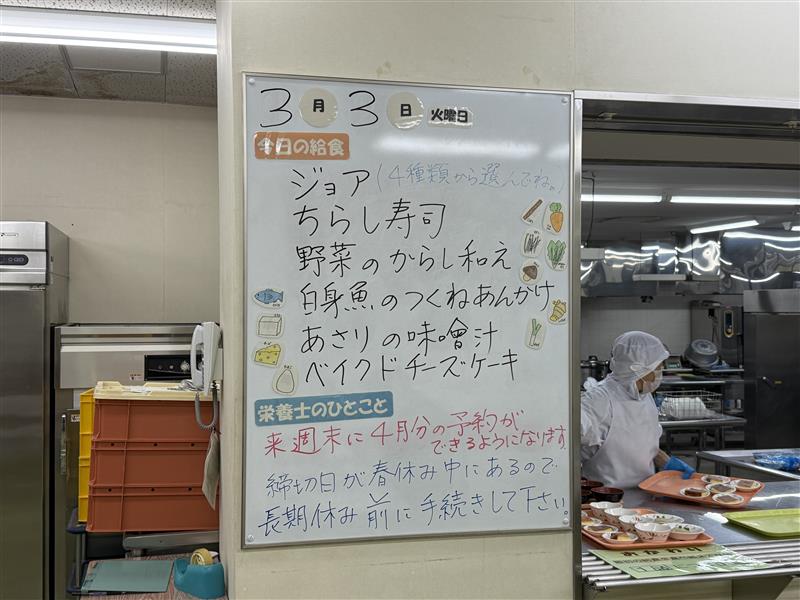 3月3日 火曜日
今日の給食
ジョア(4種類から選んでね。)
ちらし寿司
野菜のからし和え
白身魚のつくねあんかけ
あさりの味噌汁
ベイクドチーズケーキ
栄養士のひとこと
来週末に4月分の予約が
できるようになります。
締切日が春休み中にあるので
長期休み前に手続きして下さい。